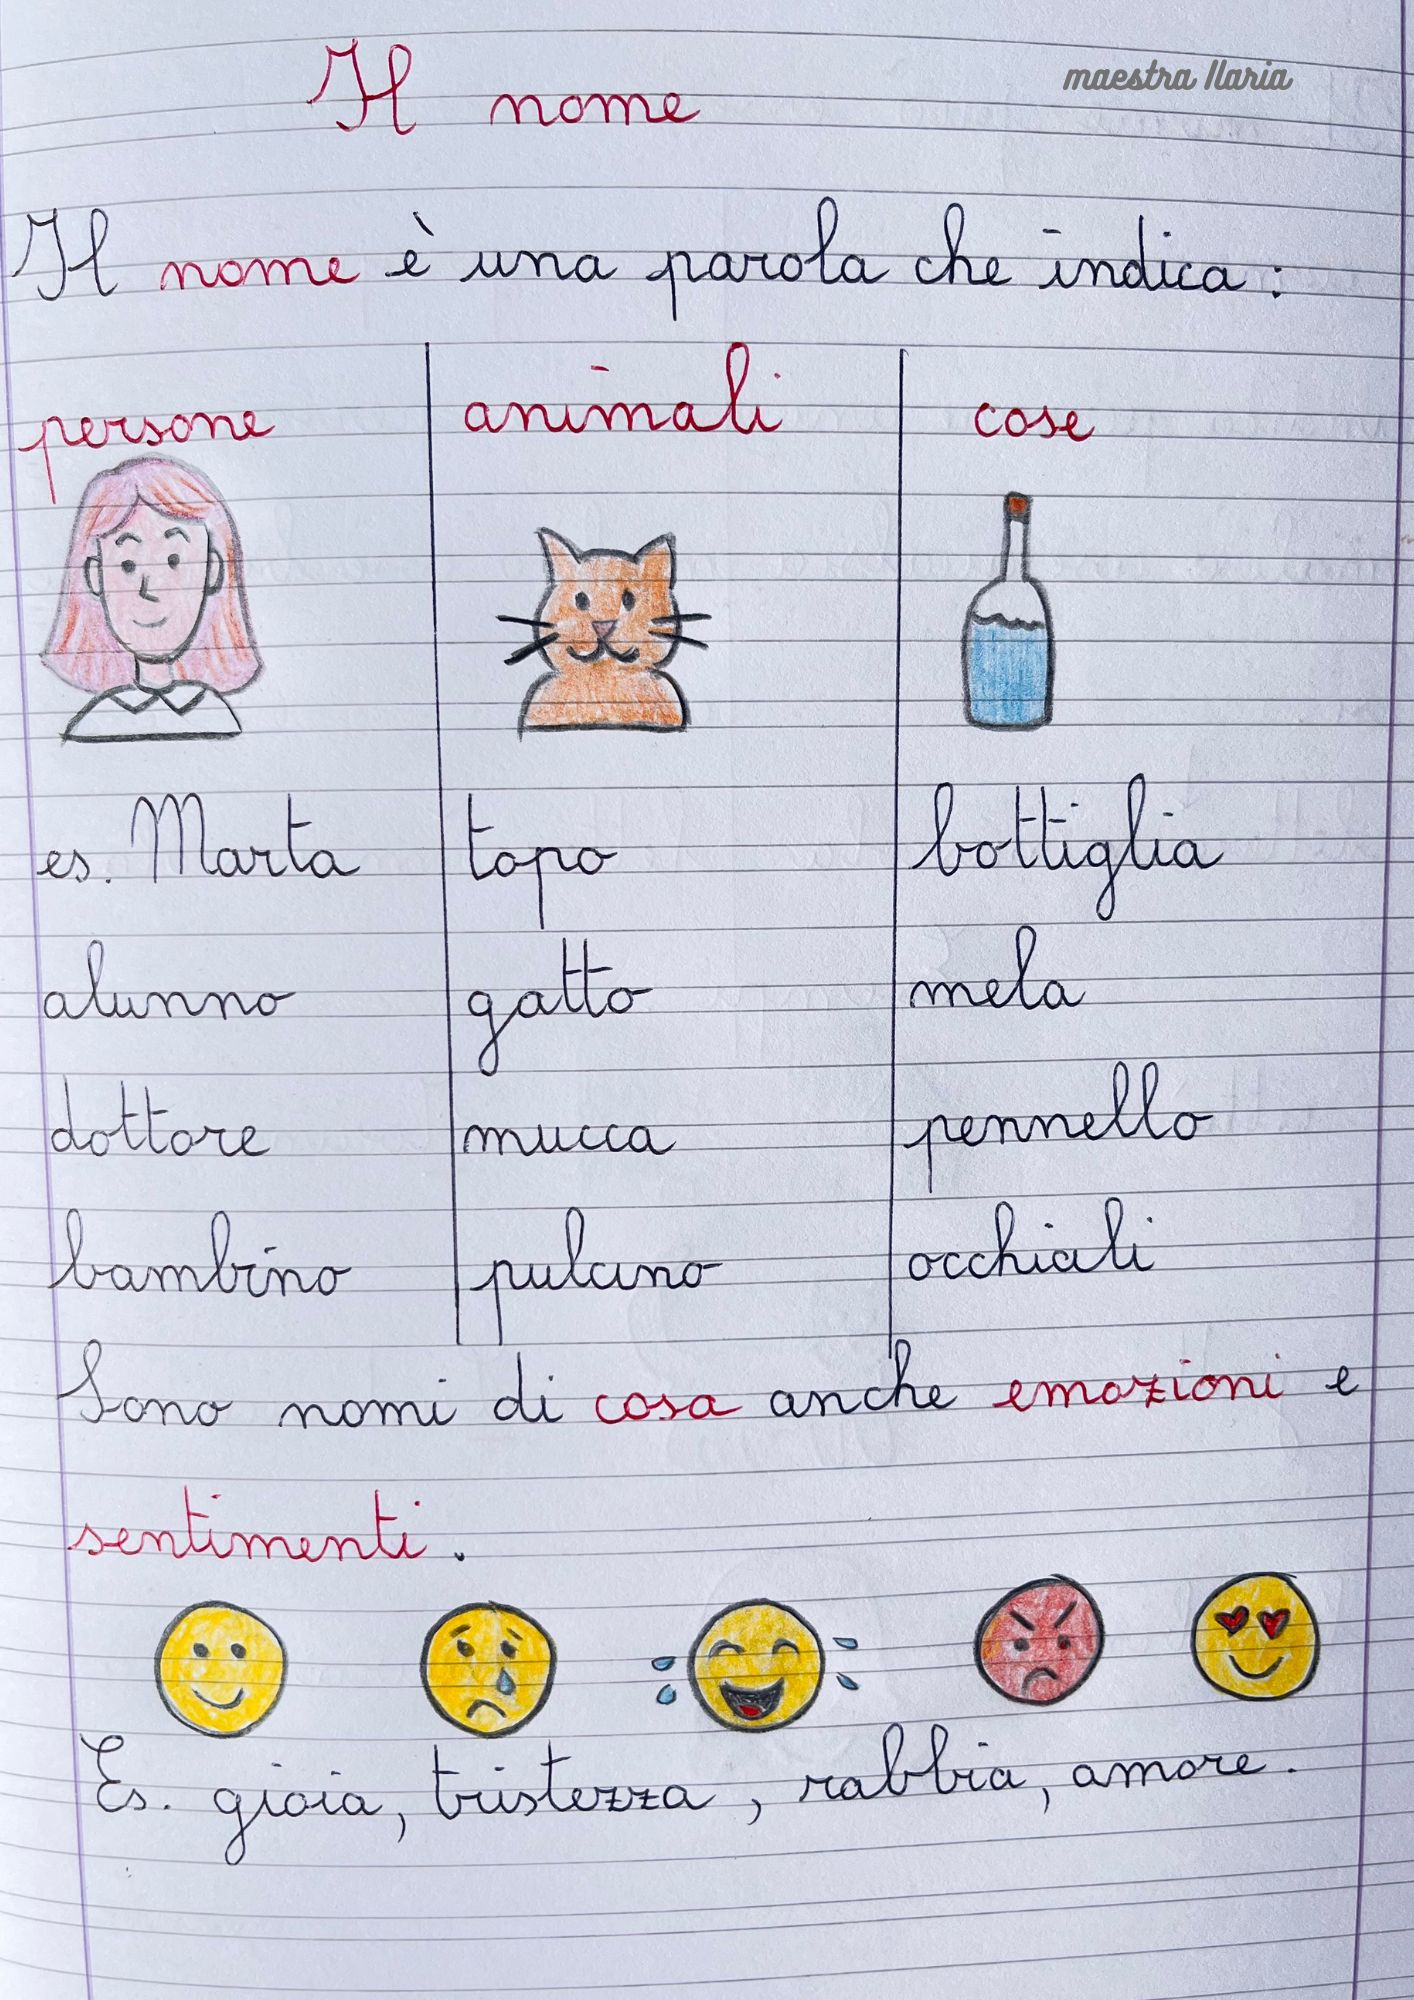 maestra Ilaria
Il nome
Il nome è una parola che indica:
persone animali cose
es. Marta topo bottiglia
alunno gatto mela
dottore mucca pennello
bambino pulcino occhiali
Sono nomi di cosa anche emozioni e
sentimenti.
Es. gioia, tristezza, rabbia, amore.